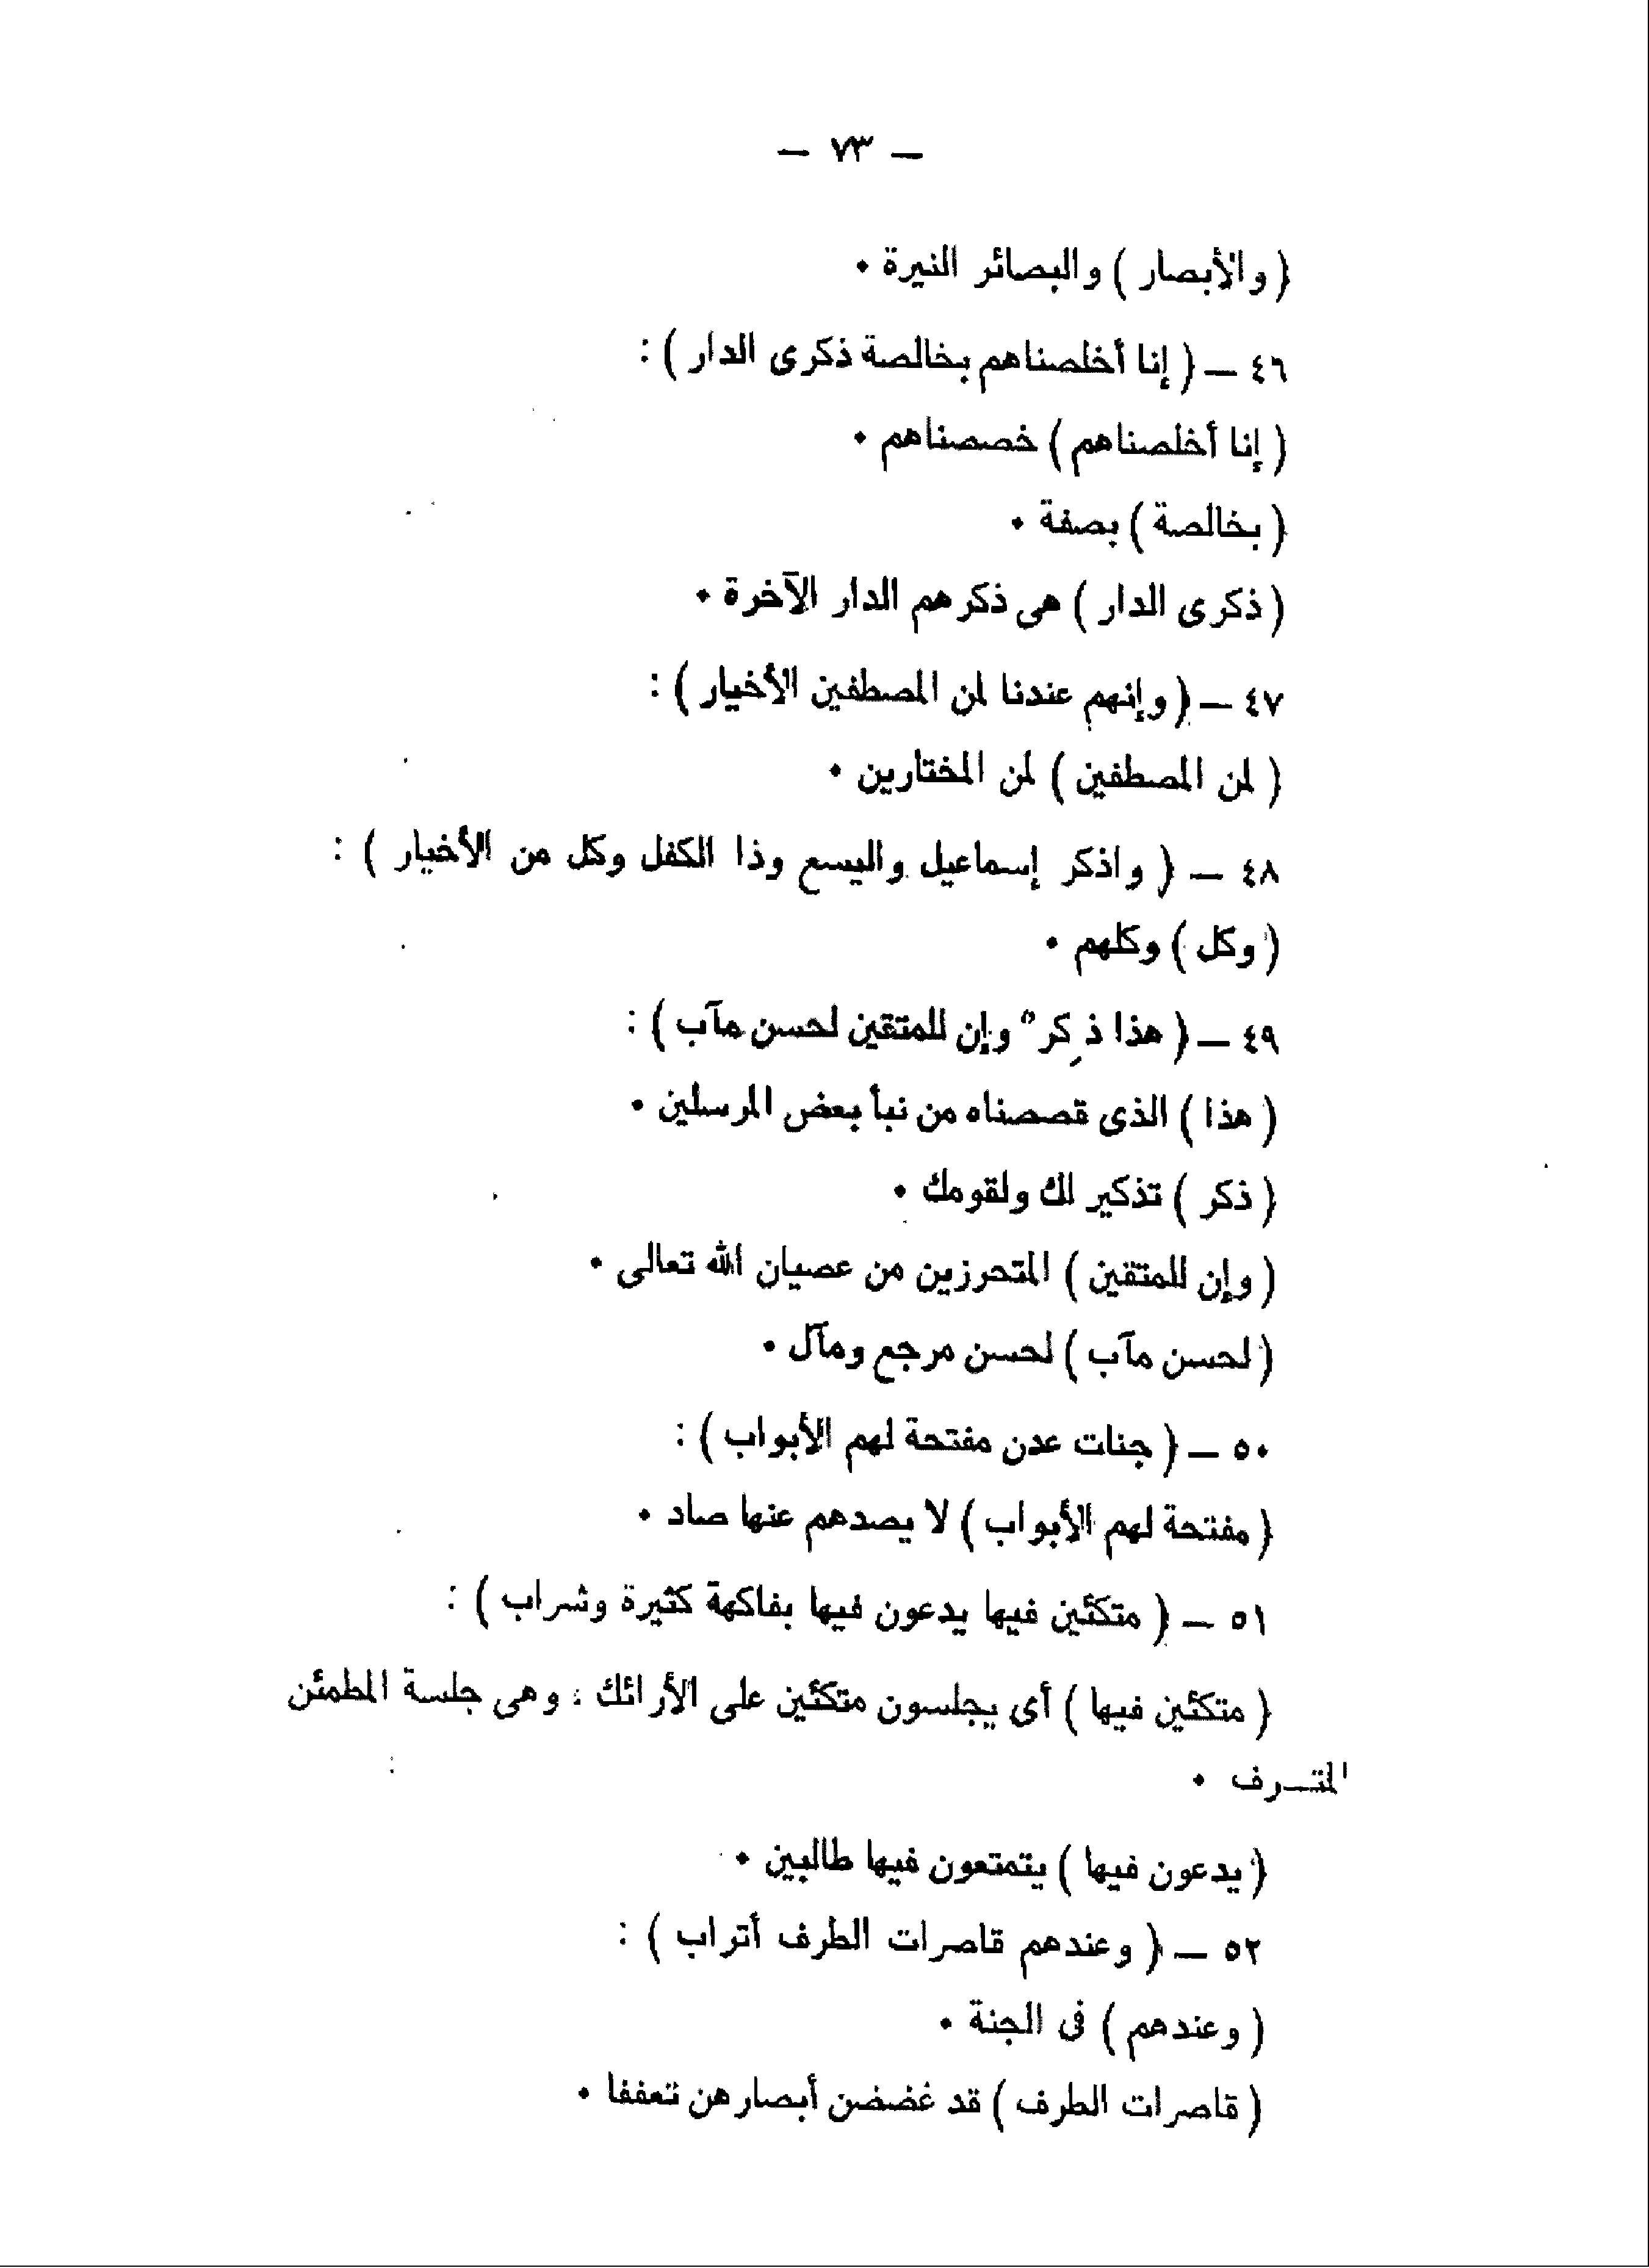 — ٧٣ —
( والأبصار ) والبصائر النيرة ٠
٤٦ — ( إنا أخلصناهم بخالصة ذكرى الدار ) :
( إنا أخلصناهم ) خصصناهم ٠
( بخالصة ) بصفة ٠
( ذكرى الدار ) هى ذكرهم الدار الآخرة ٠
٤٧ — ( وإنهم عندنا لمن المصطفين الأخيار ) :
( لمن المصطفين ) لمن المختارين ٠
٤٨ — ( واذكر إسماعيل واليسع وذا الكفل وكل من الأخيار ) :
( وكل ) وكلهم ٠
٤٩ — ( هذا ذِكرٌ وإن للمتقين لحسن مآب ) :
( هذا ) الذى قصصناه من نبأ بعض المرسلين ٠
( ذكر ) تذكير لك ولقومك ٠
( وإن للمتقين ) المتحرزين من عصيان الله تعالى ٠
( لحسن مآب ) لحسن مرجع ومآل ٠
٥٠ — ( جنات عدن مفتحة لهم الأبواب ) :
( مفتحة لهم الأبواب ) لا يصدهم عنها صاد ٠
٥١ — ( متكئين فيها يدعون فيها بفاكهة كثيرة وشراب ) :
( متكئين فيها ) أى يجلسون متكئين على الأرائك ، وهى جلسة المطمئن
المتــرف ٠
( يدعون فيها ) يتمتعون فيها طالبين ٠
٥٢ — ( وعندهم قاصرات الطرف أتراب ) :
( وعندهم ) فى الجنة ٠
( قاصرات الطرف ) قد غضضن أبصارهن تعففا ٠